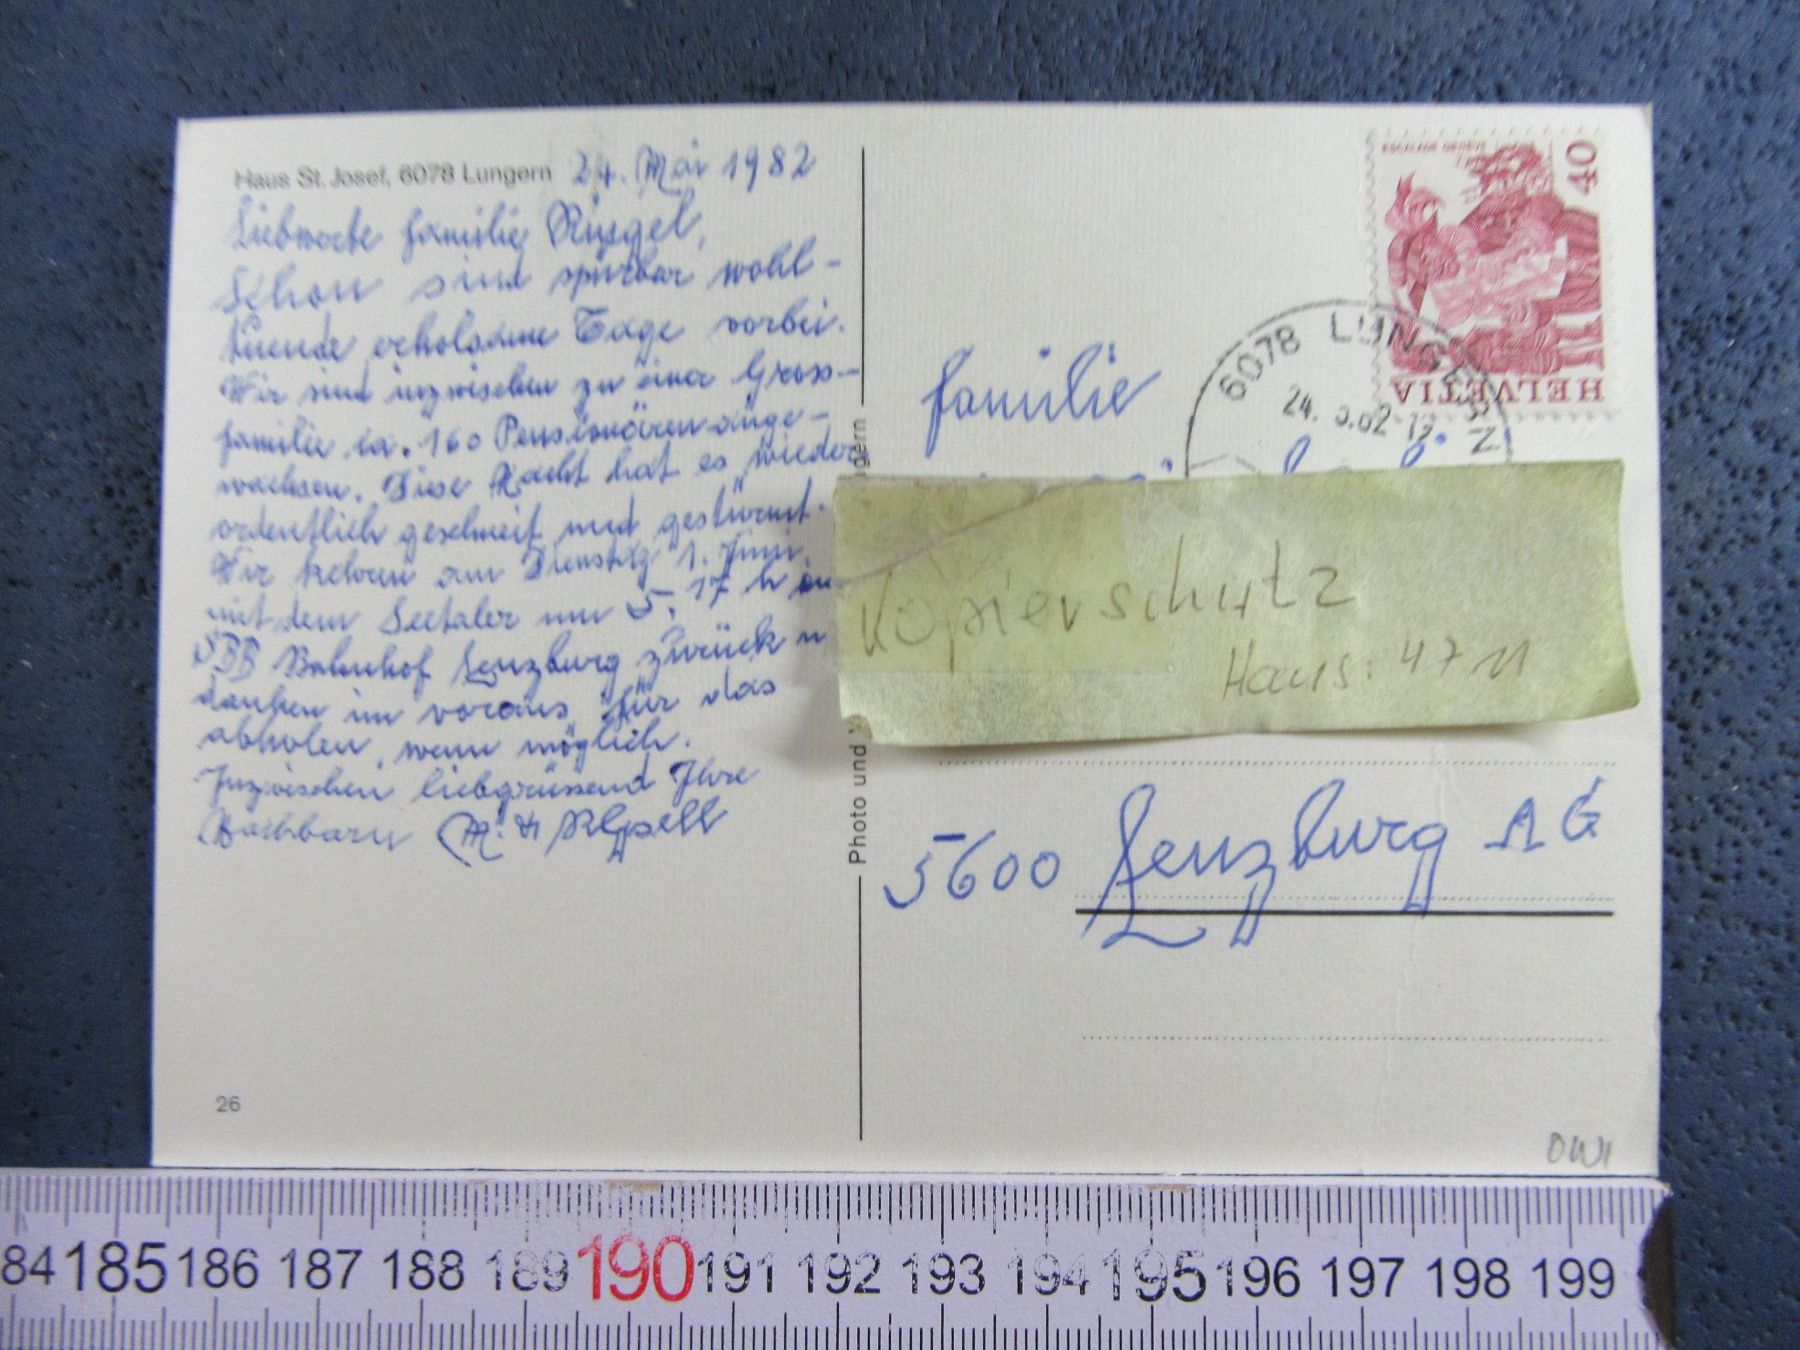 Haus St. Josef, 6078 Lungern 24. Mai 1982
Liebwerte Familie
Schon sind spürbar wohl-
tuende erholsame Tage vorbei.
Wir sind inzwischen zu einer Gross-
familie ca. 160 Pensionären ange-
wachsen. Diese Nacht hat es wieder
ordentlich geschneit und gestürmt.
Wir kehren am Dienstag 1. Juni
mit dem Seetaler um 5.17 h im
SBB Bahnhof Lenzburg zurück u
danken im voraus für das
abholen, wenn möglich.
Inzwischen liebgrüssend Ihre
Nachbarn
26
Photo und
ngern
ESCALADE GENÈVE
40
HELVETIA
6078 LUNGERN
24. 82
Familie
Kopierschutz
Haus: 4711
5600 Lenzburg AG
OW1
84 185 186 187 188 189 190 191 192 193 194 195 196 197 198 199